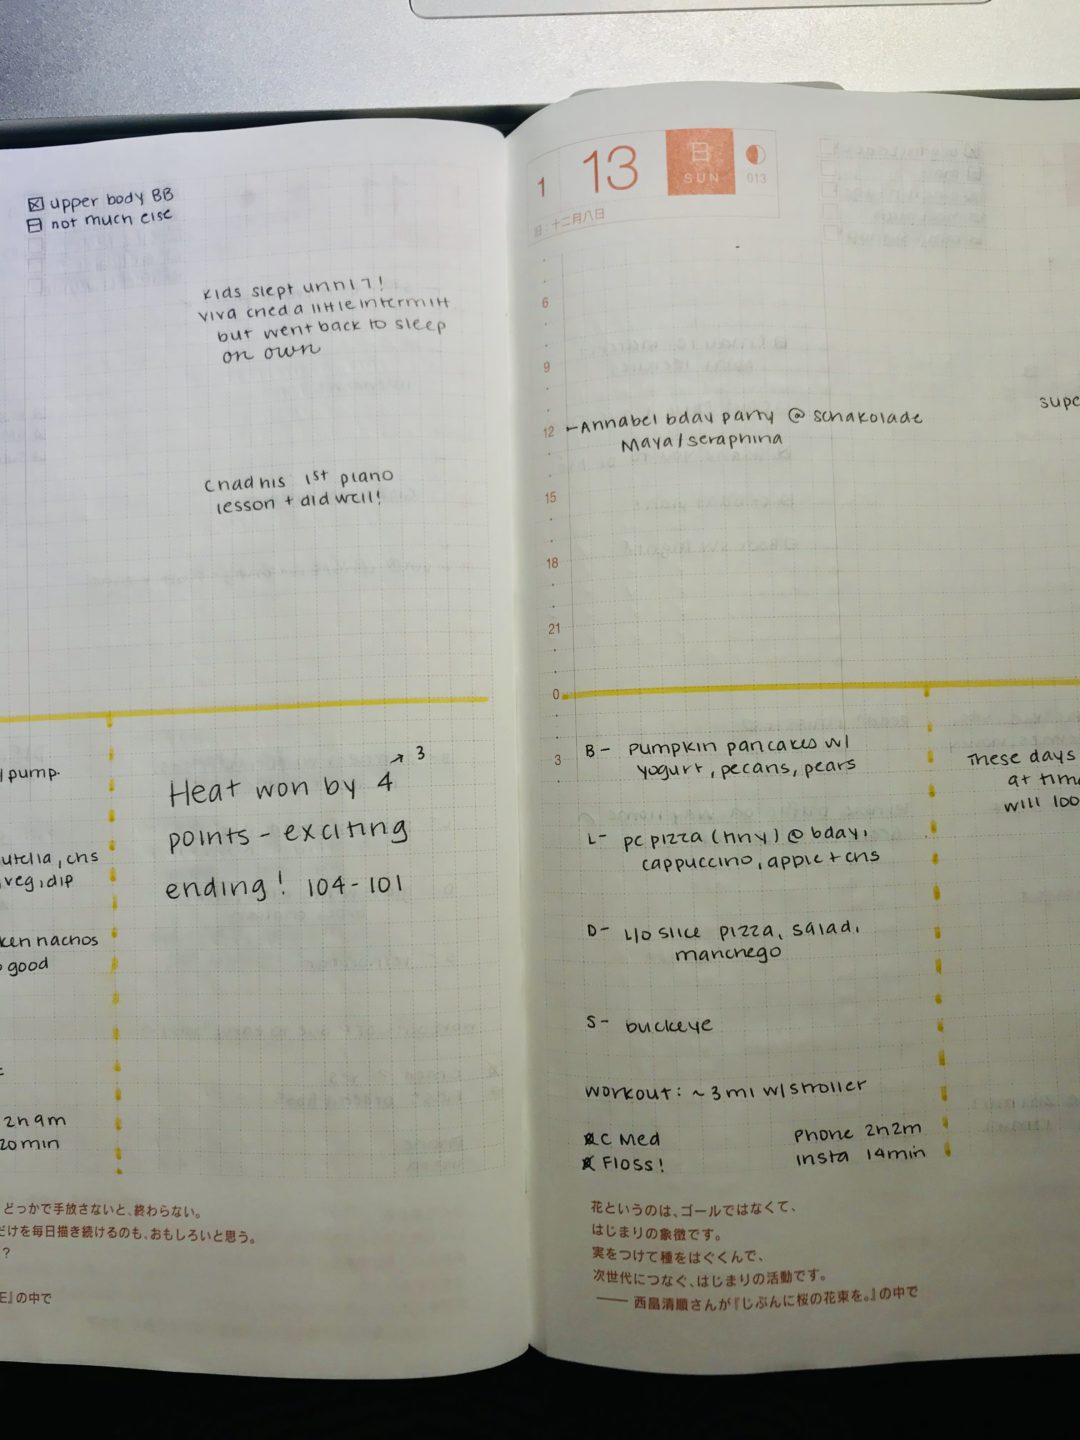 upper body BB
not much else
kids slept until 7!
viva cried a little intermitt
but went back to sleep
on own
Chad his 1st piano
lesson + did well!
/pump.
utella, cns
veg, dip
ken nachos
good
2h 9m
20 min
3
Heat won by 4
points - exciting
ending! 104-101
どっかで手放さないと、終わらない。
だけを毎日描き続けるのも、おもしろいと思う。
?
』の中で
1 13 日 SUN 013
旧:十二月八日
6
9
12 -Annabel bday party @ schakolade
Maya/seraphina
supe
15
18
21
0
3
B- pumpkin pancakes w/
yogurt, pecans, pears
L- pc pizza (tiny) @ bday,
cappuccino, apple + cns
D- L/o slice pizza, salad,
manchego
S- buckeye
workout: ~3mi w/stroller
C Med
Floss!
Phone 2h2m
Insta 14min
These days
at time
will loo
花というのは、ゴールではなくて、
はじまりの象徴です。
実をつけて種をはぐくんで、
次世代につなぐ、はじまりの活動です。
―― 西畠清順さんが『じぶんに桜の花束を。』の中で